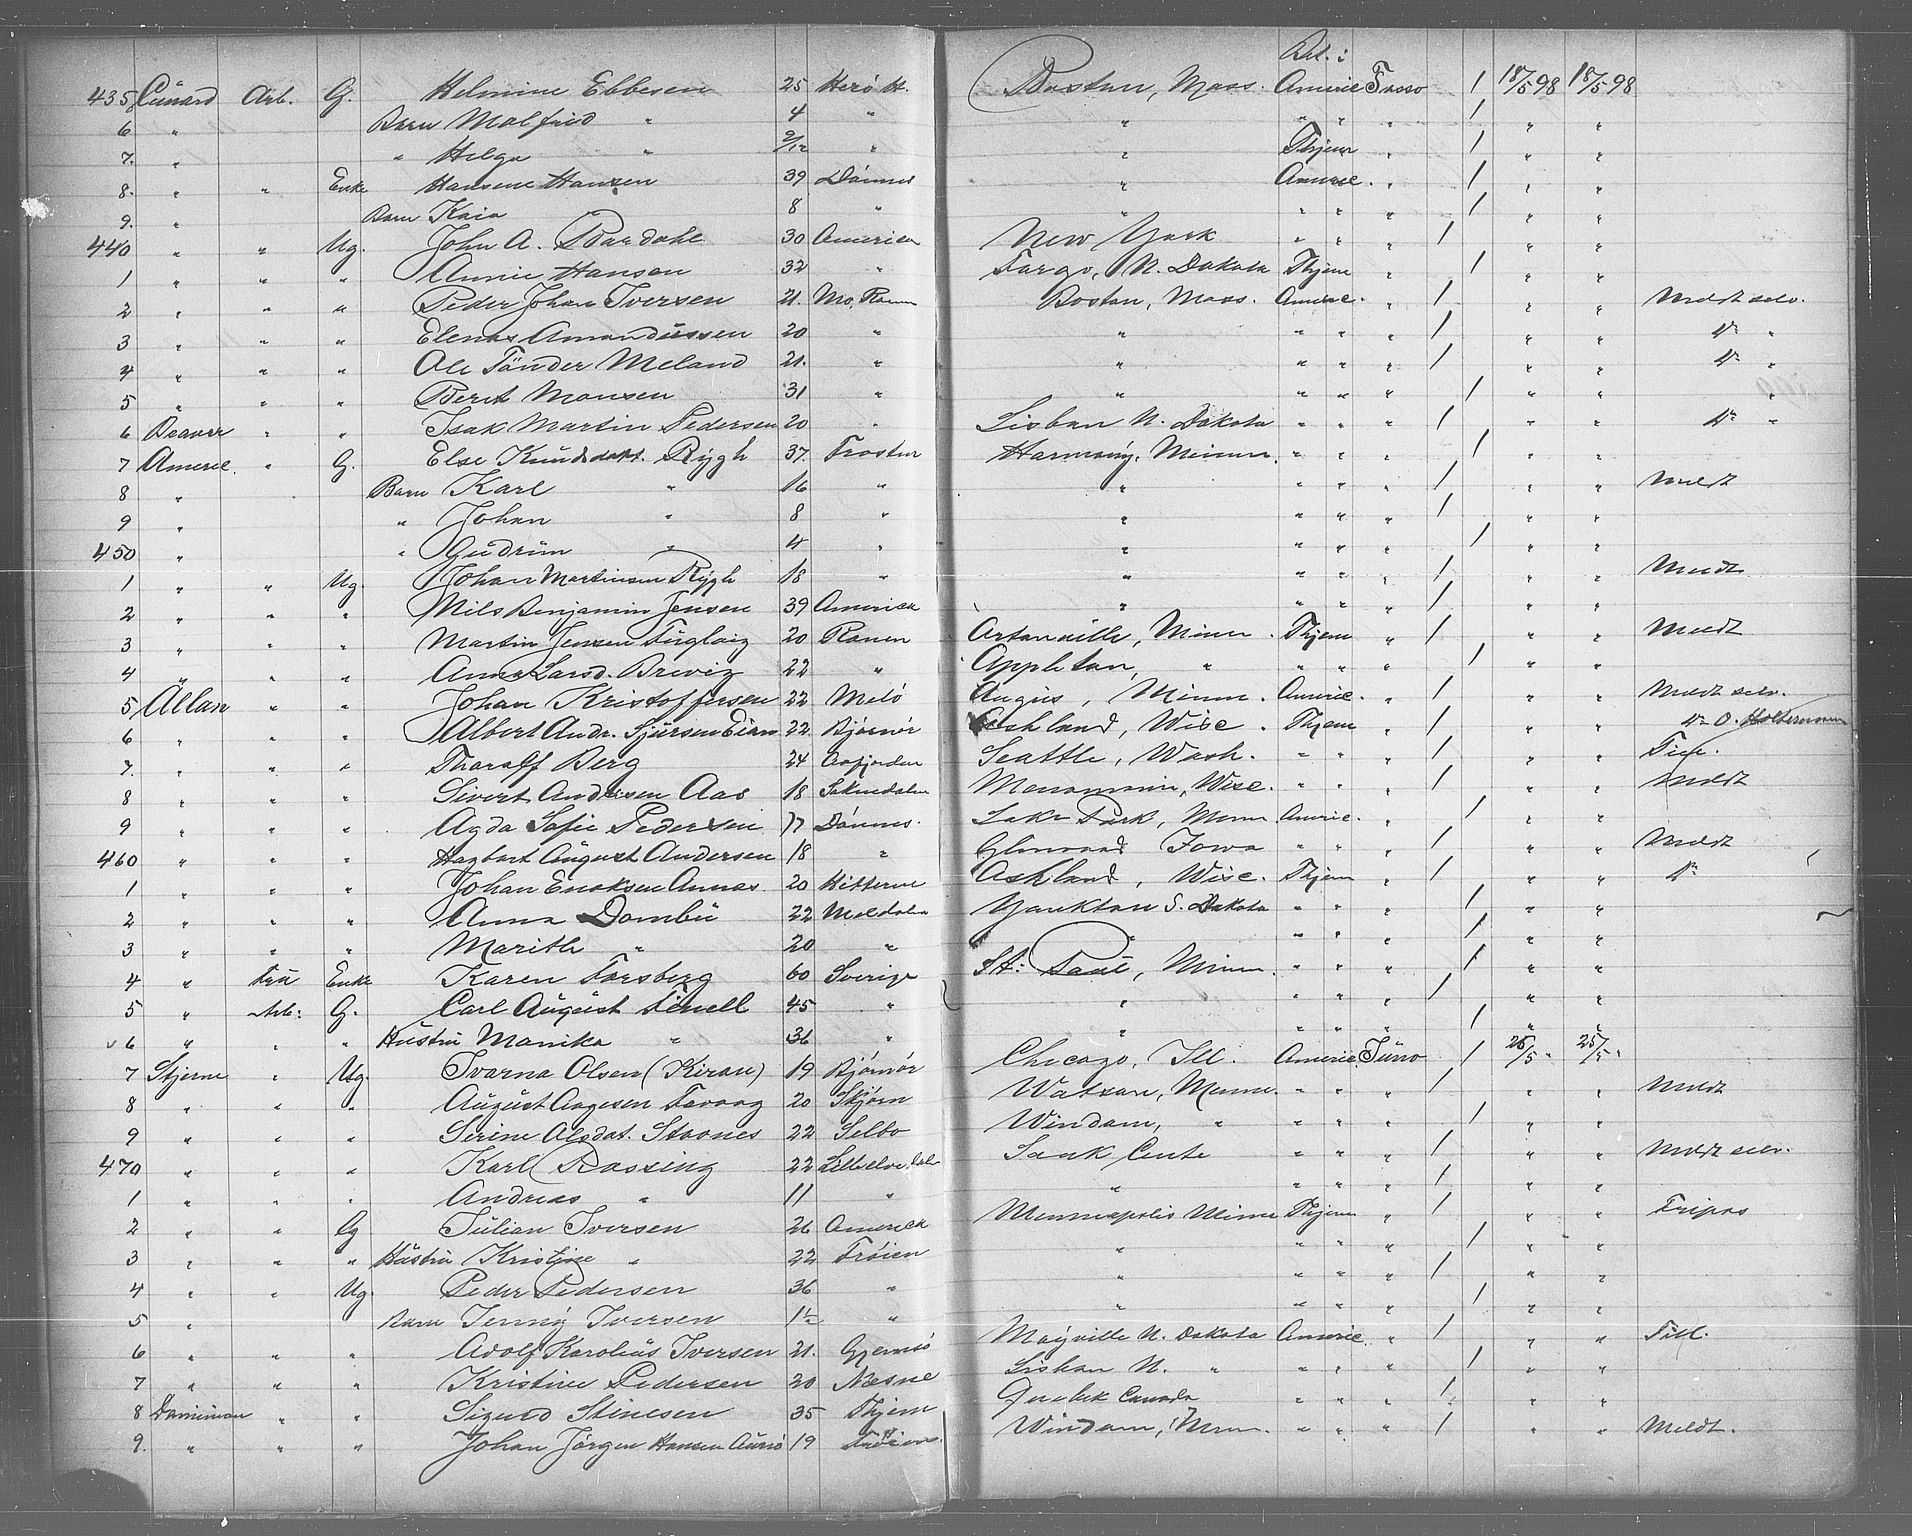 Bet.:
435 Cunard Arb. G. Helmine Ebbesen 25 Herø H. Boston, Mass. Americ Tasso 1 18/5 98 18/5 98
6 " Barn Malfrid " 4 " " " " " 1 " "
7. " " Helga " 9/12 " " Thjem " 1 " "
8. " " Enke Hansine Hansen 39 Dønnes " Americ. " 1 " "
9. " Barn Kaia 8 " " " " " 1 " "
440 " " Ug. John A. Bardahl 30 America New York " " " 1 " "
1 " " " Annie Hansen 32 " Fargo, N. Dakota Thjem " 1 " "
2 " " " Peder Johan Iversen 21. Mo, Ranen Boston, Mass. Americ. " 1 " " Meldt selv.
3 " " " Elenus Amandussen 20 " " " " " 1 " " do "
4 " " " Ole Tønder Meland 21. " " " " " 1 " " do "
5 " " " Berit Monsen 31 " " " " " 1 " " "
6 Beaver " " Isak Martin Pedersen 20 " Lisbon N. Dakota " " " 1 " " do "
7 Americ. " G. Else Knudsdatt. Rygh 37. Frosten Harmony, Minnn. " " " 1 " "
8 " Barn Karl " 16 " " " " " 1 " " Meldt
9 " " Johan " 8 " " " " " 1 " "
450 " " Gudrun " 4 " " " " " 1 " "
1 " " Ug. Johan Martinsen Rygh 18 " " " " " 1 " " Meldt
2 " " " Nils Benjamin Jensen 39 America " " " " 1 " "
3 " " " Martin Jensen Fuglvig 20 Ranen Artonville, Minn. Thjem " 1 " " Meldt
4 " " " Anna Larsd. Brevig 22 " Appleton, " " " " 1 " "
5 Allan " " Johan Kristoffersen 22 Melø Angus, Minn. Americ. " 1 " " Meldt selv.
6 " " " Albert Andr. Sjursen Eian 22 Bjørnør Ashland, Wisc. Thjem " 1 " " do O.
7. " " " Tharalf Berg 24 Aafjorden Seattle, Wash. " " " 1 " "
8 " " " Sivert Andersen Aas 18 Soknedalen Menomnin, Wisc. " " " 1 " " Meldt
9 " " " Agda Sofie Pedersen 17 Dønnes. Lake Park, Minn Americ. " 1 " "
460 " " " Hagbart August Andersen 18 " Glenwood Iowa " " " 1 " " Meldt
1 " " " Johan Enoksen Aunes. 20 Hitteren Ashland, Wisc. Thjem " 1 " " do
2 " " " Anna Dombu 22 Meldalen Yankton S. Dakota " " " 1 " "
3 " " " Marith " 20 " " " " " 1 " "
4 " Fru Enke Karen Forsberg 60 Sverige St: Paul, Minn. " " " 1 " "
5 " Arb: G. Carl August Fenell 45 " " " " " 1 " "
6 " " " Hustru Monika " 36 " " " " " 1 " "
7 Stjerne " Ug. Ivarna Olsen (Kiran) 19 Bjørnør Chicago, Ill. Americ. Juno 1 25/5 " 25/5 "
8 " " " August Aagesen Fevaag 20 Skjørn Watson, Minne. " " " 1 " " Meldt
9 " " " Serine Olsdat. Stovnes 22 Selbo Windom, " " " " 1 " "
470 " " " Karl Rossing 22 Lilleelvedalen Sauk Cente " " " 1 " " Meldt selv.
1 " " " Andreas " 11 " " " " " 1 " "
2 " " G Julian Iversen 26 America Minneapolis Minne Thjem " 1 " " Fripas
3 " " " Hustru Kristine " 22 Frøien " " " " 1 " "
4 " " Ug. Peder Pedersen 36 " " " " " 1 " "
5 " Barn Jenny Iversen 1½ " " " " " 1 " "
6 " " " Adolf Karolius Iversen 21. Gjemsø Mayville N. Dakota Americ. " 1 " "
7 " " " Kristine Pedersen 20 Nesne Lisbon N. " " " " 1 " "
8 Dominion " " Sigurd Stinesen 35 Thjem Quebek Canada " " " 1 " "
9. " " " Johan Jørgen Hansen Aursø 19 Frøien. Windom, Minn. " " " 1 " " Meldt.